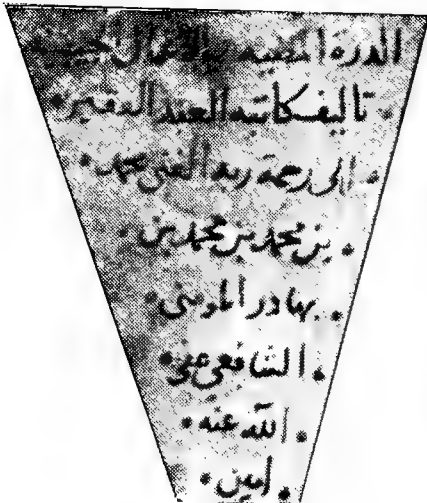 الدرة المضيه في الاعمال
تاليف كاتبه العبد الفقير
الى رحمة ربه الغنى محمد
بن محمد بن محمد بن
بهادر المومنى
الشافعى عفى
الله عنه
امين